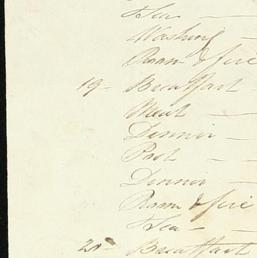 Tea —
Washing —
Room & fire
19 — Breakfast
Meat —
Dinner —
Post —
Dinner —
Room & fire
Tea —
20 — Breakfast